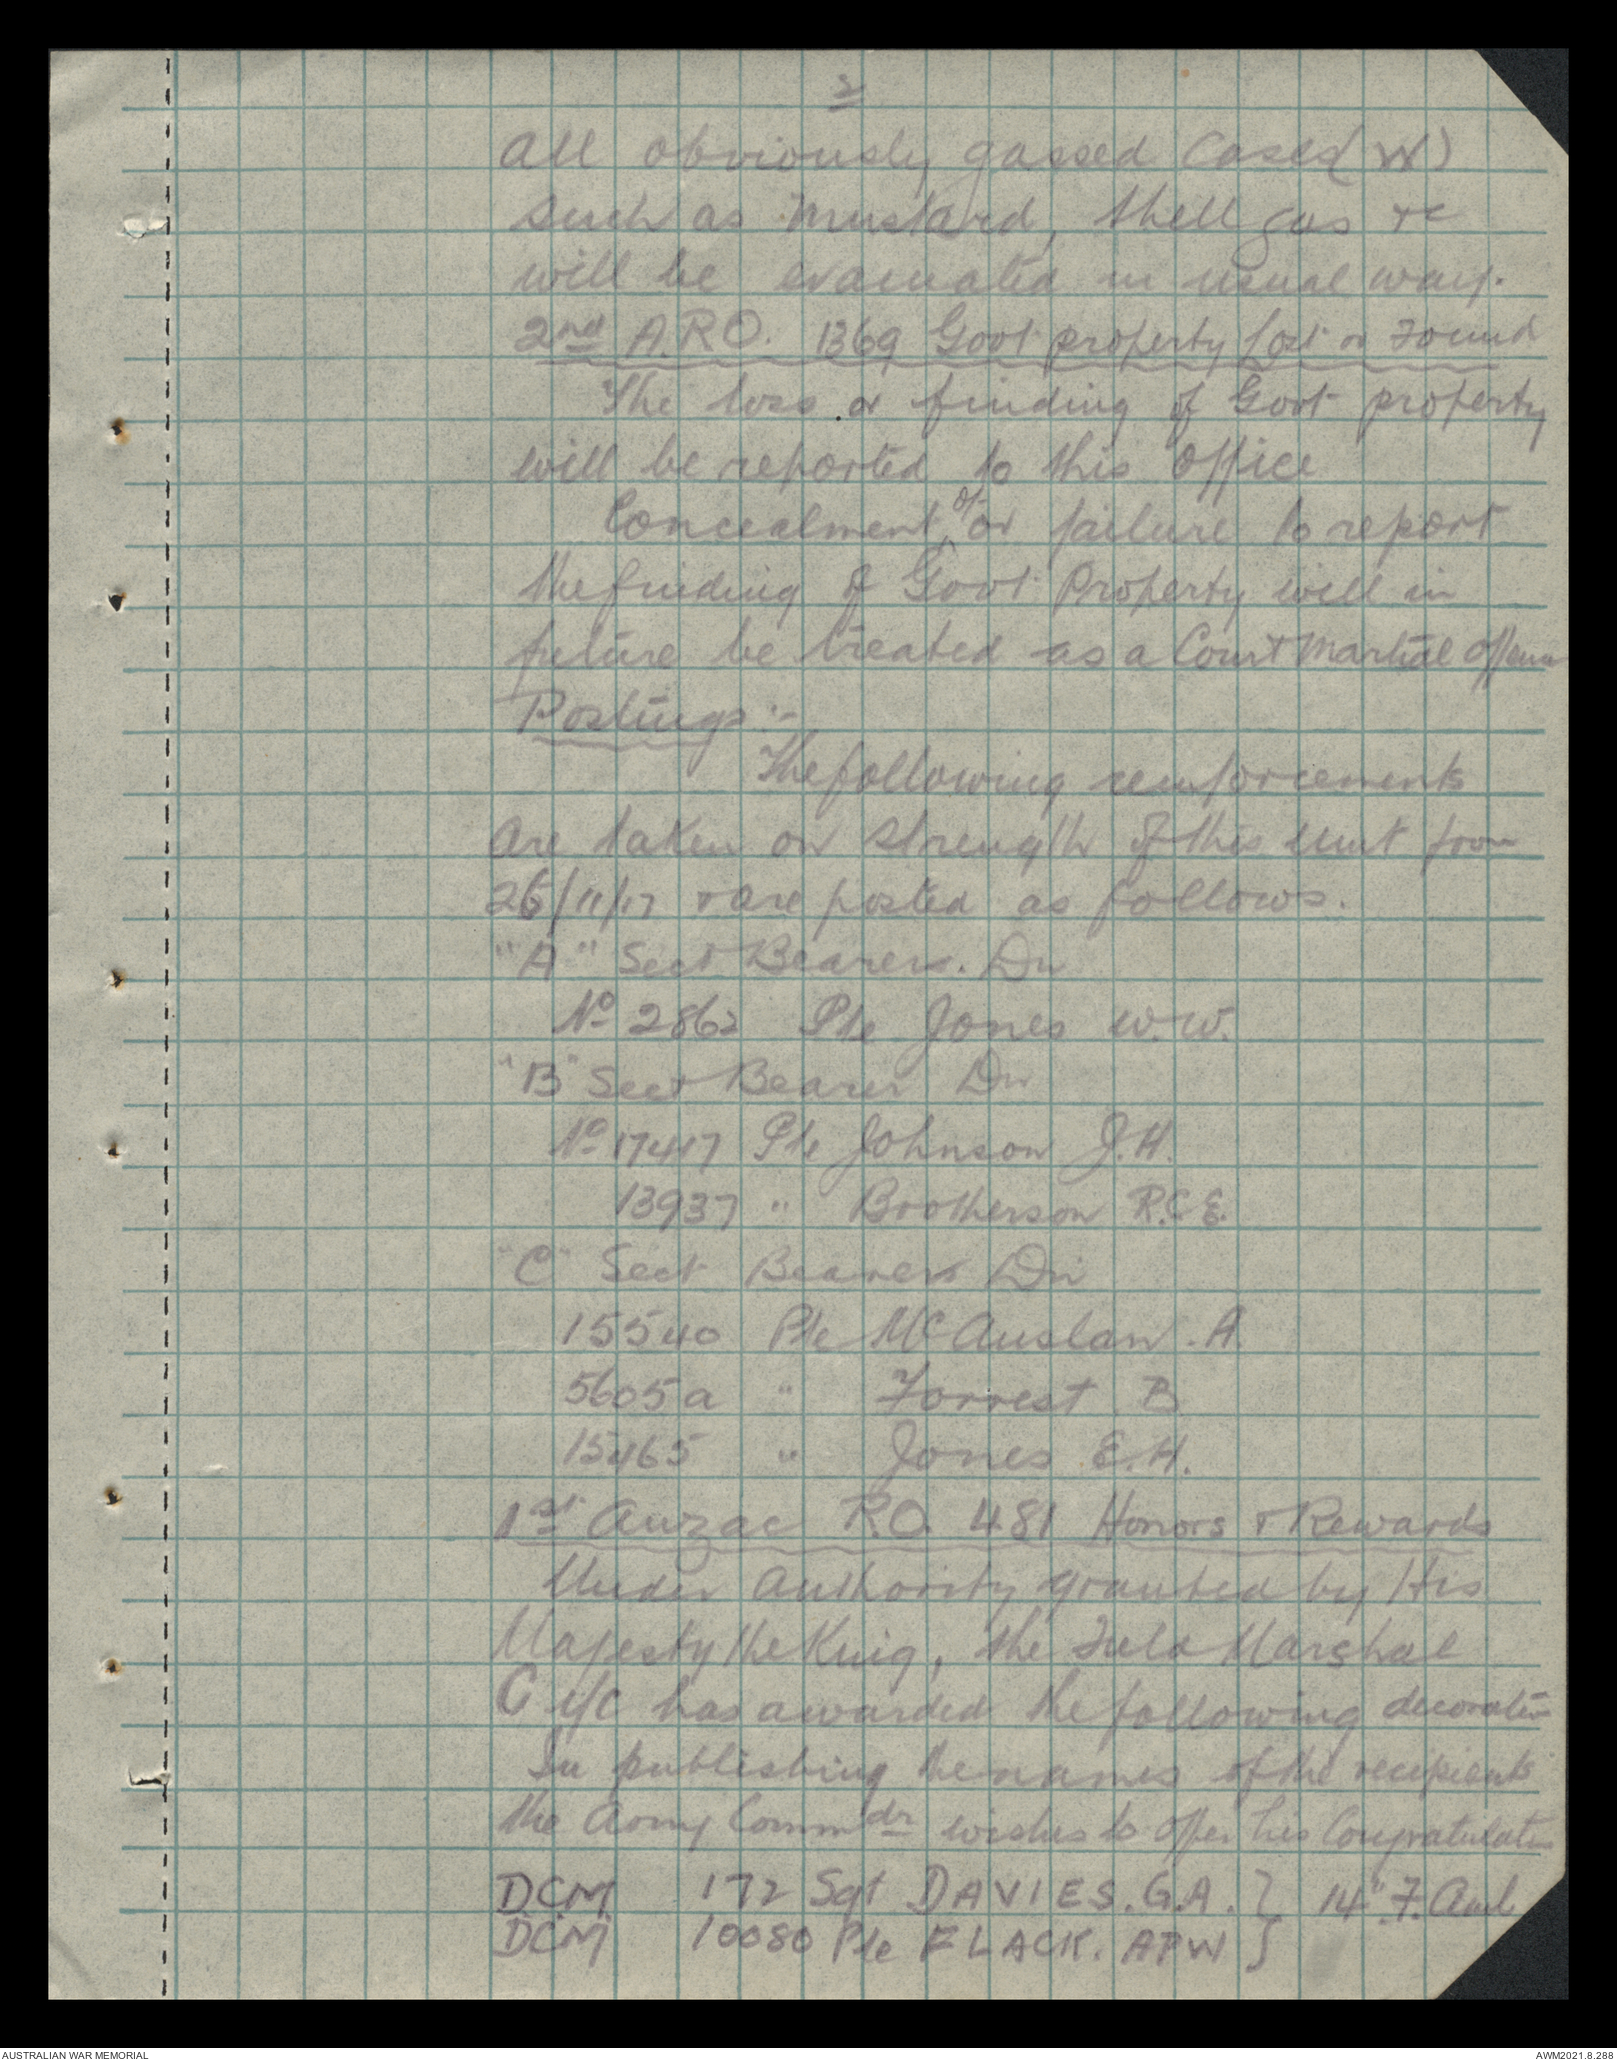 2
All obviously gassed Cases (W)
such as Mustard, Shell gas &c
will be evacuated in usual way.
2nd A.R.O. 1369 Govt property Lost or Found
The loss or finding of Govt property
will be reported to this Office
Concealment of or failure to report
the finding of Govt Property will in
future be treated as a Court Martial Offence
Postings :-
The following reinforcements
are taken on strength of this unit from
26/11/17 & are posted as follows.
"A" Sect Bearers. Div
No 2862 Pte Jones W.W.
"B" Sect Bearer Div
No 17417 Pte Johnson J.H.
13937 " Brotherson R.C.E.
"C" Sect Bearers Div
15540 Pte McAuslan . A.
5605a " Forrest B
15465 " Jones E.H.
1st Anzac R.O. 481 Honors & Rewards
Under Authority granted by His
Majesty the King, the Field Marshal
C i/c has awarded the following decoration
In publishing the names of the recipients
the Army Commdr wishes to offer his Congratulations
D.C.M. 172 Sgt DAVIES. G.A. } 14th F. Amb
DCM 10080 Pte FLACK. APW }
AUSTRALIAN WAR MEMORIAL
AWM2021.8.288